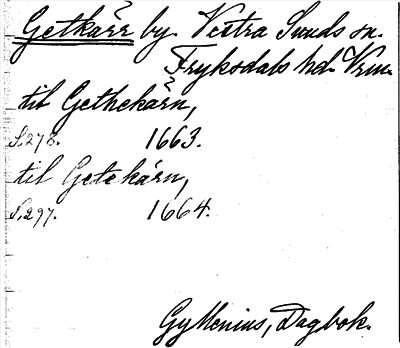 Getkärr by. Vestra Sunds sn.
Fryksdals hd. Vrm.
til Gethekärn,
S. 278. 1663.
til Getekärn,
S. 297. 1664.
Gyllenius, Dagbok.